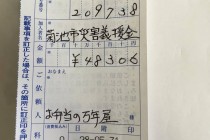 209738
加入者名
菊池市災害義援金
金額
¥48306
ご依頼人
おなまえ
お弁当の万年屋
記載事項を訂正した場合は、その箇所に訂正印を押